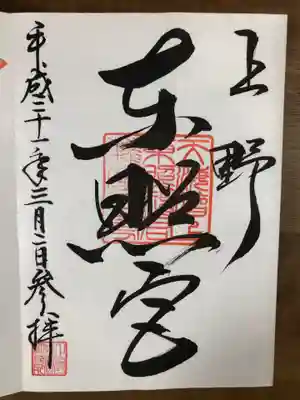 上野
東照宮
平成二十一年三月二日参拝